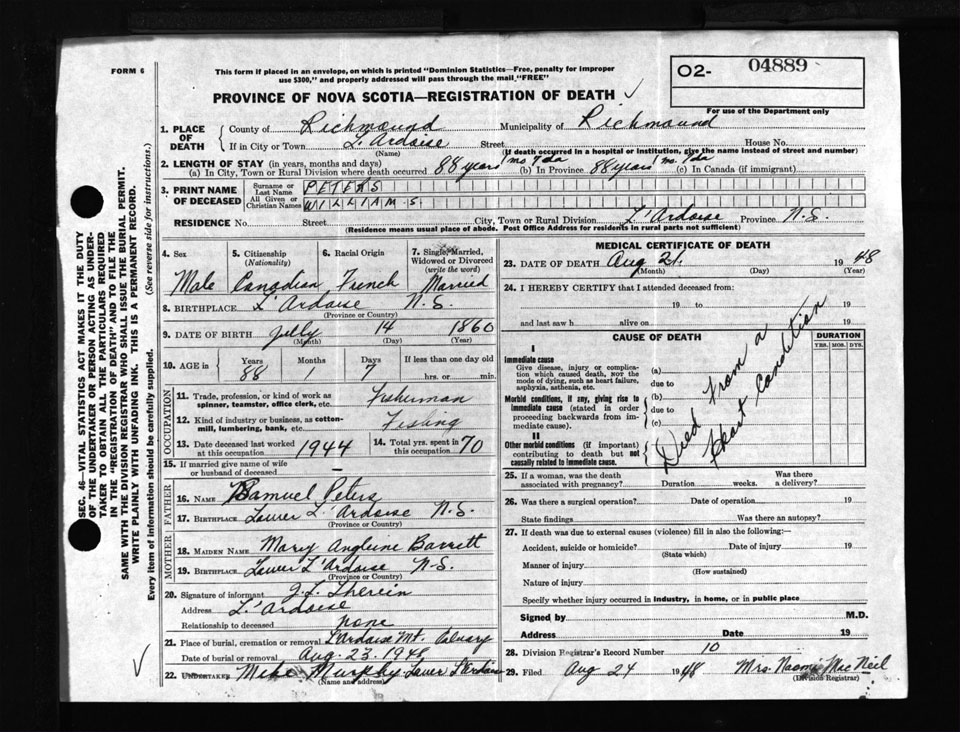 FORM 6
This form if placed in an envelope, on which is printed "Dominion Statistics—Free, penalty for improper
use $300," and properly addressed will pass through the mail, "FREE"
PROVINCE OF NOVA SCOTIA—REGISTRATION OF DEATH ✓
O2- 04889
For use of the Department only
1. PLACE OF DEATH { County of Richmound Municipality of Richmound
If in City or Town L'Ardoise Street House No.
(Name) (If death occurred in a hospital or institution, give the name instead of street and number)
2. LENGTH OF STAY (in years, months and days)
(a) In City, Town or Rural Division where death occurred 88 years 1 mo 7 da (b) In Province 88 years 1 mo 7 da (c) In Canada (if immigrant)
3. PRINT NAME OF DECEASED { Surname or Last Name PETERS
All Given or Christian Names WILLIAM S
RESIDENCE No. Street City, Town or Rural Division L'Ardoise Province N.S.
(Residence means usual place of abode. Post Office Address for residents in rural parts not sufficient)
4. Sex Male
5. Citizenship (Nationality) Canadian
6. Racial Origin French
7. Single, Married, Widowed or Divorced (write the word) Married
8. BIRTHPLACE L'Ardoise N.S.
(Province or Country)
9. DATE OF BIRTH July 14 1860
(Month) (Day) (Year)
10. AGE in { Years 88 Months 1 Days 7 If less than one day old hrs. or min.
OCCUPATION
11. Trade, profession, or kind of work as spinner, teamster, office clerk, etc. Fisherman
12. Kind of industry or business, as cotton-mill, lumbering, bank, etc. Fishing
13. Date deceased last worked at this occupation 1944 14. Total yrs. spent in this occupation 70
15. If married give name of wife or husband of deceased –
FATHER
16. NAME Samuel Peters
17. BIRTHPLACE Lower L'Ardoise N.S.
(Province or Country)
MOTHER
18. MAIDEN NAME Mary Barrett
19. BIRTHPLACE Lower L'Ardoise N.S.
(Province or Country)
20. Signature of informant J.L. Therein
Address L'Ardoise
Relationship to deceased none
21. Place of burial, cremation or removal L'Ardoise Mt. Calvary
Date of burial or removal Aug. 23. 1948
22. UNDERTAKER Mike Murphy Lower L'Ardoise
(Name and address)
MEDICAL CERTIFICATE OF DEATH
23. DATE OF DEATH Aug 21. 1948
(Month) (Day) (Year)
24. I HEREBY CERTIFY that I attended deceased from:
19 to 19
and last saw h alive on 19
CAUSE OF DEATH DURATION
YRS. MOS. DYS.
I
Immediate cause
Give disease, injury or complication which caused death, NOT the mode of dying, such as heart failure, asphyxia, asthenia, etc.
(a)
due to
Morbid conditions, if any, giving rise to immediate cause (stated in order proceeding backwards from immediate cause).
(b)
due to
(c)
II
Other morbid conditions (if important) contributing to death but not causally related to immediate cause.
Died from a
Heart Condition
25. If a woman, was the death associated with pregnancy? Duration weeks. Was there a delivery?
26. Was there a surgical operation? Date of operation 19
State findings Was there an autopsy?
27. If death was due to external causes (violence) fill in also the following:—
Accident, suicide or homicide? Date of injury 19
(State which)
Manner of injury
(How sustained)
Nature of injury
Specify whether injury occurred in industry, in home, or in public place
Signed by M.D.
Address Date 19
28. Division Registrar's Record Number 10
29. Filed Aug 24 1948 Mrs. Naomi MacNeil
(Division Registrar)
SEC. 46—VITAL STATISTICS ACT MAKES IT THE DUTY
OF THE UNDERTAKER OR PERSON ACTING AS UNDER-
TAKER TO OBTAIN ALL THE PARTICULARS REQUIRED
IN THE "REGISTRATION OF DEATH" AND TO FILE THE
SAME WITH THE DIVISION REGISTRAR WHO SHALL ISSUE THE BURIAL PERMIT.
WRITE PLAINLY WITH UNFADING INK. THIS IS A PERMANENT RECORD.
Every item of information should be carefully supplied. (See reverse side for instructions.)
✓